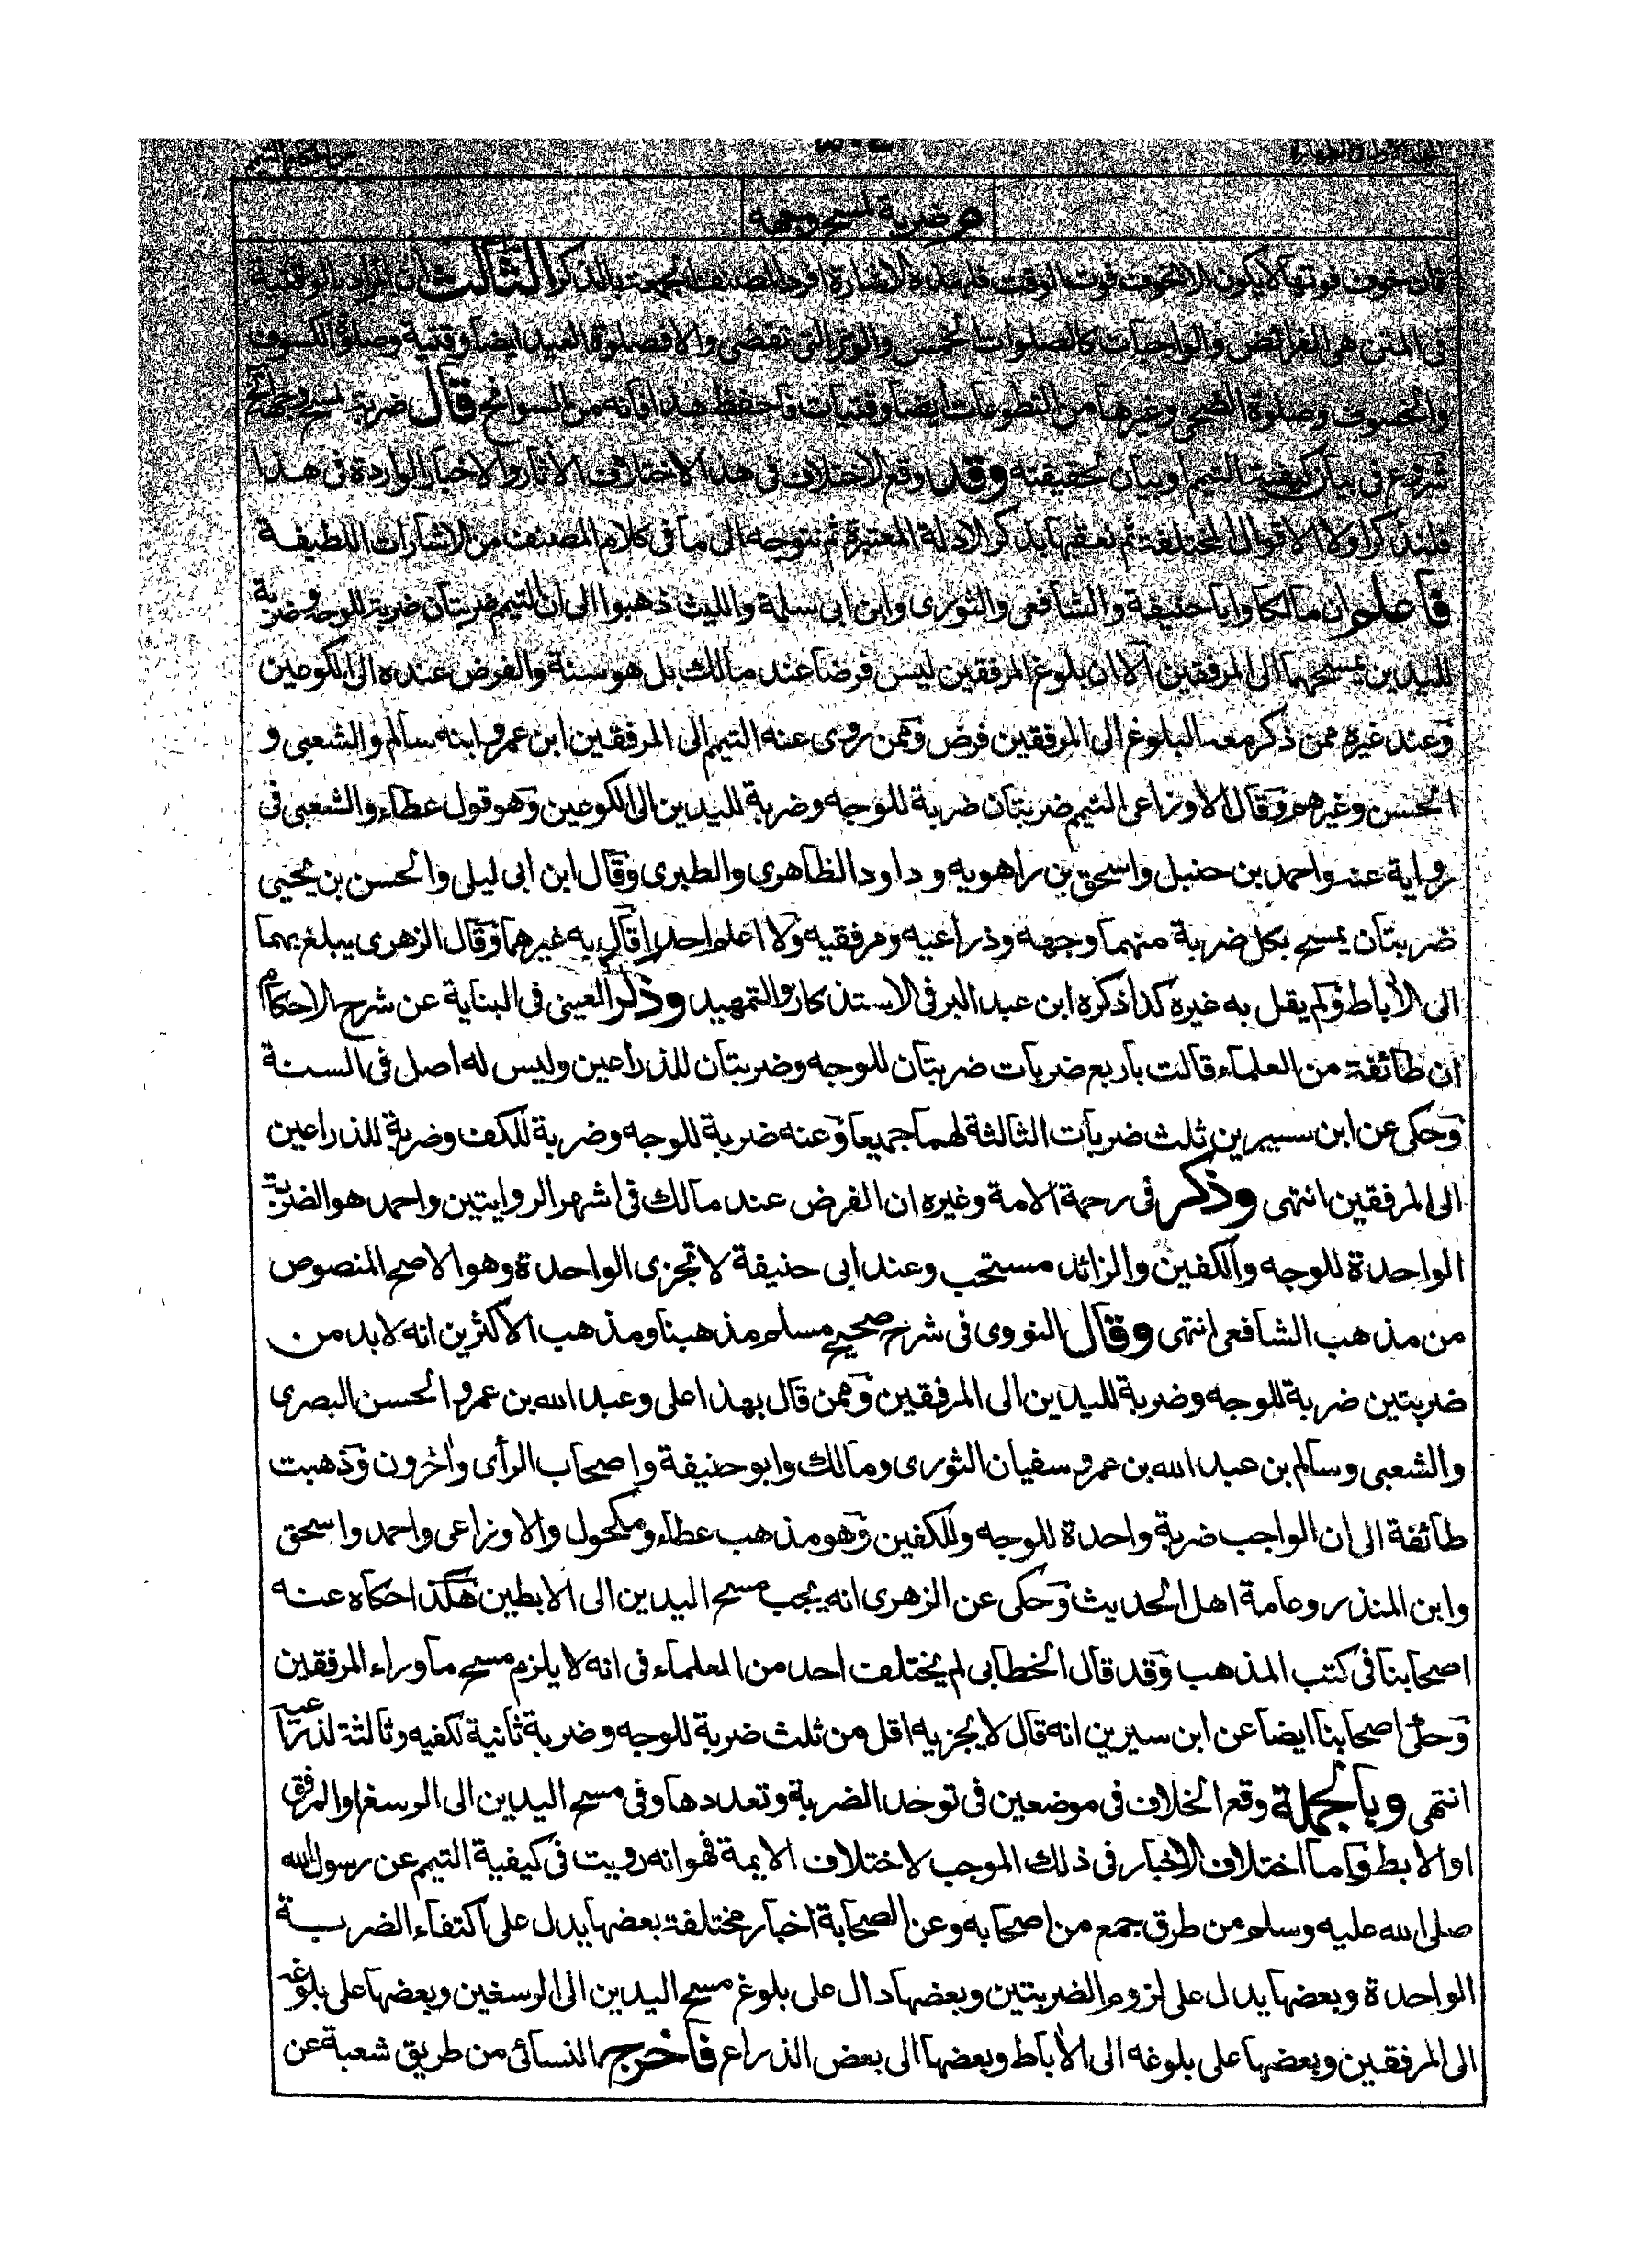 م ضربة لمسح وجهه
فان خوف فوتها لا يكون الا لخوف فوت الوقت فلهذه الاشارة افرد المصنف الجمعة بالذكر الثالث ان المراد بالوقتية
فى المتن هى الفرائض والواجبات كالصلوات الخمس والوتر التى تقضى والا فصلوة العيد ايضا وقتية وصلوة الكسوف
والخسوف وصلوة الضحى وغيرها من التطوعات ايضا وقتيات فاحفظ هذا فانه من السوانح قال ضربة لمسح وجهه الخ
شروع فى بيان كيفية التيمم وبيان لحقيقته وقد وقع الاختلاف فى هذا لاختلاف الاثار والاخبار الواردة فى هذا
فلنذكر اولا الاقوال المختلفة ثم نعقبها بذكر الادلة المعتبرة ثم نتوجه الى ما فى كلام المصنف من الاشارات اللطيفة
فاعلم ان مالكا وابا حنيفة والشافعى والثورى وابن ابى سلمة والليث ذهبوا الى ان التيمم ضربتان ضربة للوجه وضربة
لليدين يمسحهما الى المرفقين الا ان بلوغ المرفقين ليس فرضا عند مالك بل هو سنة والفرض عنده الى الكوعين
وعند غيره ممن ذكر معه البلوغ الى المرفقين فرض وممن روى عنه التيمم الى المرفقين ابن عمر وابنه سالم والشعبى و
الحسن وغيرهم وقال الاوزاعى التيمم ضربتان ضربة للوجه وضربة لليدين الى الكوعين وهو قول عطاء والشعبى فى
رواية عنه واحمد بن حنبل واسحق بن راهويه وداود الظاهرى والطبرى وقال ابن ابى ليلى والحسن بن يحيى
ضربتان يمسح بكل ضربة منهما وجهه وذراعيه ومرفقيه ولا اعلم احدا قال به غيرهما وقال الزهرى يبلغ بهما
الى الأباط ولم يقل به غيره كذا ذكره ابن عبد البر فى الاستذكار والتمهيد وذكر العينى فى البناية عن شرح الاحكام
ان طائفة من العلماء قالت باربع ضربات ضربتان للوجه وضربتان للذراعين وليس له اصل فى السنة
وحكى عن ابن سيرين ثلث ضربات الثالثة لهما جميعا وعنه ضربة للوجه وضربة للكف وضربة للذراعين
الى المرفقين انتهى وذكر فى رحمة الامة وغيره ان الفرض عند مالك فى اشهر الروايتين واحمد هو الضربة
الواحدة للوجه والكفين والزائد مستحب وعند ابى حنيفة لا تجزى الواحدة وهو الاصح المنصوص
من مذهب الشافعى انتهى وقال النووى فى شرح صحيح مسلم مذهبنا ومذهب الاكثرين انه لا بد من
ضربتين ضربة للوجه وضربة لليدين الى المرفقين وممن قال بهذا على وعبد الله بن عمر والحسن البصرى
والشعبى وسالم بن عبد الله بن عمر وسفيان الثورى ومالك وابو حنيفة واصحاب الرأى وأخرون وذهبت
طائفة الى ان الواجب ضربة واحدة للوجه وللكفين وهو مذهب عطاء ومكحول والاوزاعى واحمد واسحق
وابن المنذر وعامة اهل الحديث وحكى عن الزهرى انه يجب مسح اليدين الى الابطين هكذا حكاه عنه
اصحابنا فى كتب المذهب وقد قال الخطابى لم يختلف احد من العلماء فى انه لا يلزم مسح ما وراء المرفقين
وحكى اصحابنا ايضا عن ابن سيرين انه قال لا يجزيه اقل من ثلث ضربة للوجه وضربة ثانية لكفيه وثالثة لذراعيه
انتهى وبالجملة وقع الخلاف فى موضعين فى توحد الضربة وتعددها وفى مسح اليدين الى الرسغ او المرفق
او الابط واما اختلاف الاخبار فى ذلك الموجب لاختلاف الايمة فهو انه رويت فى كيفية التيمم عن رسول الله
صلى الله عليه وسلم من طرق جمع من اصحابه وعن الصحابة اخبار مختلفة بعضها يدل على اكتفاء الضربة
الواحدة وبعضها يدل على لزوم الضربتين وبعضها دال على بلوغ مسح اليدين الى الرسغين وبعضها على بلوغه
الى المرفقين وبعضها على بلوغه الى الأباط وبعضها الى بعض الذراع فاخرج النسائى من طريق شعبة عن